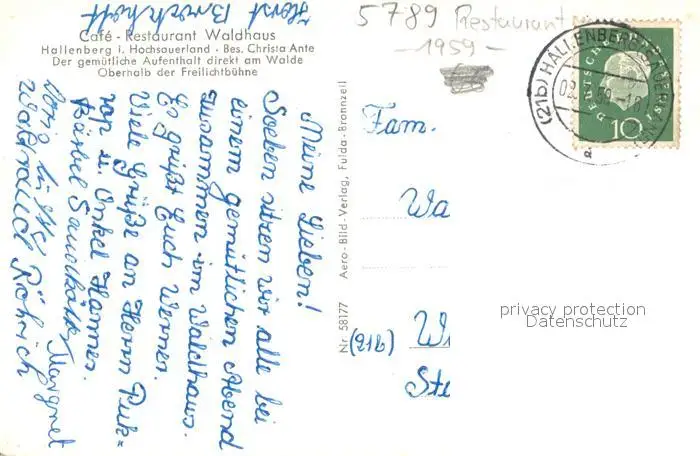 Horst
Café - Restaurant Waldhaus
Hallenberg i. Hochsauerland - Bes. Christa Ante
Der gemütliche Aufenthalt direkt am Walde
Oberhalb der Freilichtbühne
5789 Restaurant
- 1959 -
Meine Lieben!
Soeben sitzen wir alle bei
einem gemütlichen Abend
zusammen im Waldhaus.
Es grüßt Euch Werner.
Viele Grüße an Herrn
u. Onkel Hannes.
Bärbel
Margret
Waltraud Röhrich
Nr 58177 Aero-Bild-Verlag, Fulda-Bronnzell
(21b) HALLENBERG
DEUTSCHE
10
Fam.
Wa
(21b) W
Ste
privacy protection
Datenschutz